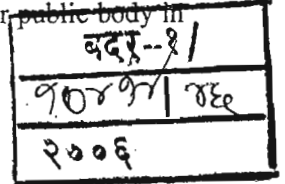 r public body in
बदर--१/
१०४१४/ ४६
२००६